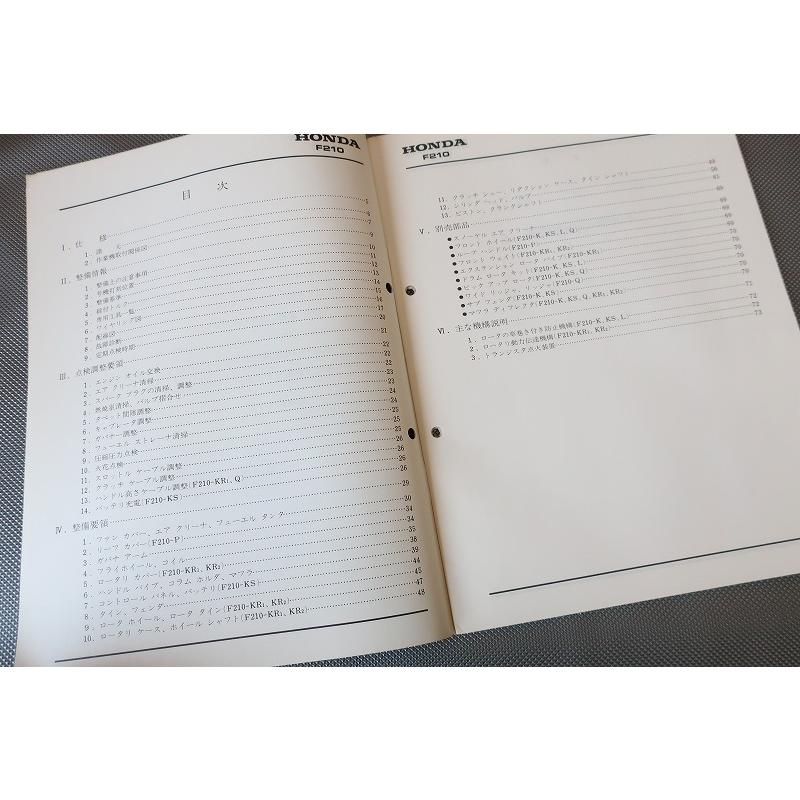 HONDA
F210
目 次
I. 仕 様 5
1. 諸 元 6
2. 作業機取付関係図 7
II. 整備情報 9
1. 整備上の注意事項 10
2. 号機打刻位置 11
3. 整備基準 12
4. 締付トルク 13
5. 専用工具一覧 14
6. ワイヤリング図 15
7. 配線図 16
8. 故障診断 17
9. 定期点検時期 20
III. 点検調整要領 21
1. エンジン オイル交換 22
2. エア クリーナ清掃 22
3. スパーク プラグの清掃、調整 22
4. 燃焼室清掃、バルブ摺合せ 23
5. タペット間隙調整 23
6. キャブレータ調整 24
7. ガバナー調整 24
8. フューエル ストレーナ清掃 25
9. 圧縮圧力点検 25
10. 火花点検 25
11. スロットル ケーブル調整 26
12. クラッチ ケーブル調整 26
13. ハンドル高さケーブル調整(F210-KR₁、Q) 26
14. バッテリ充電(F210-KS) 29
IV. 整備要領 30
1. ファン カバー、エア クリーナ、フューエル タンク 34
2. リーフ カバー(F210-P) 34
3. ガバナ アーム 35
4. フライホイール、コイル 38
5. ロータリ カバー(F210-KR₁、KR₂) 39
6. ハンドル パイプ、コラム ホルダ、マフラ 44
7. コントロール パネル、バッテリ(F210-KS) 45
8. タイン、フェンダ 47
9. ロータ ホイール、ロータ タイン(F210-KR₁、KR₂) 48
10. ロータリ ケース、ホイール シャフト(F210-KR₁、KR₂)
HONDA
F210
11. クラッチ シュー、リダクション ケース、タイン シャフト
12. シリンダ ヘッド、バルブ
13. ピストン、クランクシャフト
V. 別売部品 69
●スノーケル エア クリーナ 69
●フロント ホイール(F210-K、KS、L、Q) 69
●ループ ハンドル(F210-P) 70
●フロント ウェイト(F210-KR₁、KR₂) 70
●エクステンション ロータ パイプ(F210-KR₁) 70
●ドラム ロータ キット(F210-K、KS、L) 70
●ピック アップ ロータ(F210-K、KS、Q) 70
●ワイド リッジャ、リッジャ(F210-Q) 70
●サブ フェンダ(F210-K、KS、Q) 71
●マフラ ディフレクタ(F210-K、KS、Q、KR₁、KR₂) 71
VI. 主な機構説明 72
1. ロータの草巻き付き防止機構(F210-K、KS、L) 72
2. ロータリ動力伝達機構(F210-KR₁、KR₂) 72
3. トランジスタ点火装置 73